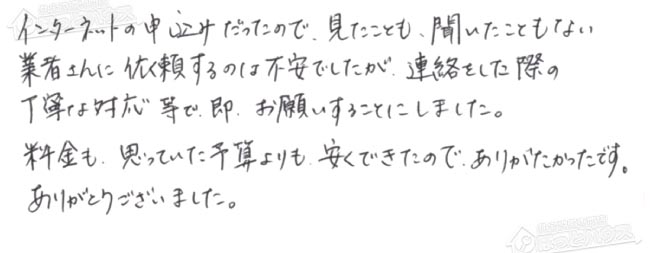 インターネットの申込みだったので、見たことも、聞いたこともない
業者さんに依頼するのは不安でしたが、連絡をした際の
丁寧な対応等で、即、お願いすることにしました。
料金も、思っていた予算よりも、安くできたので、ありがたかったです。
ありがとうございました。